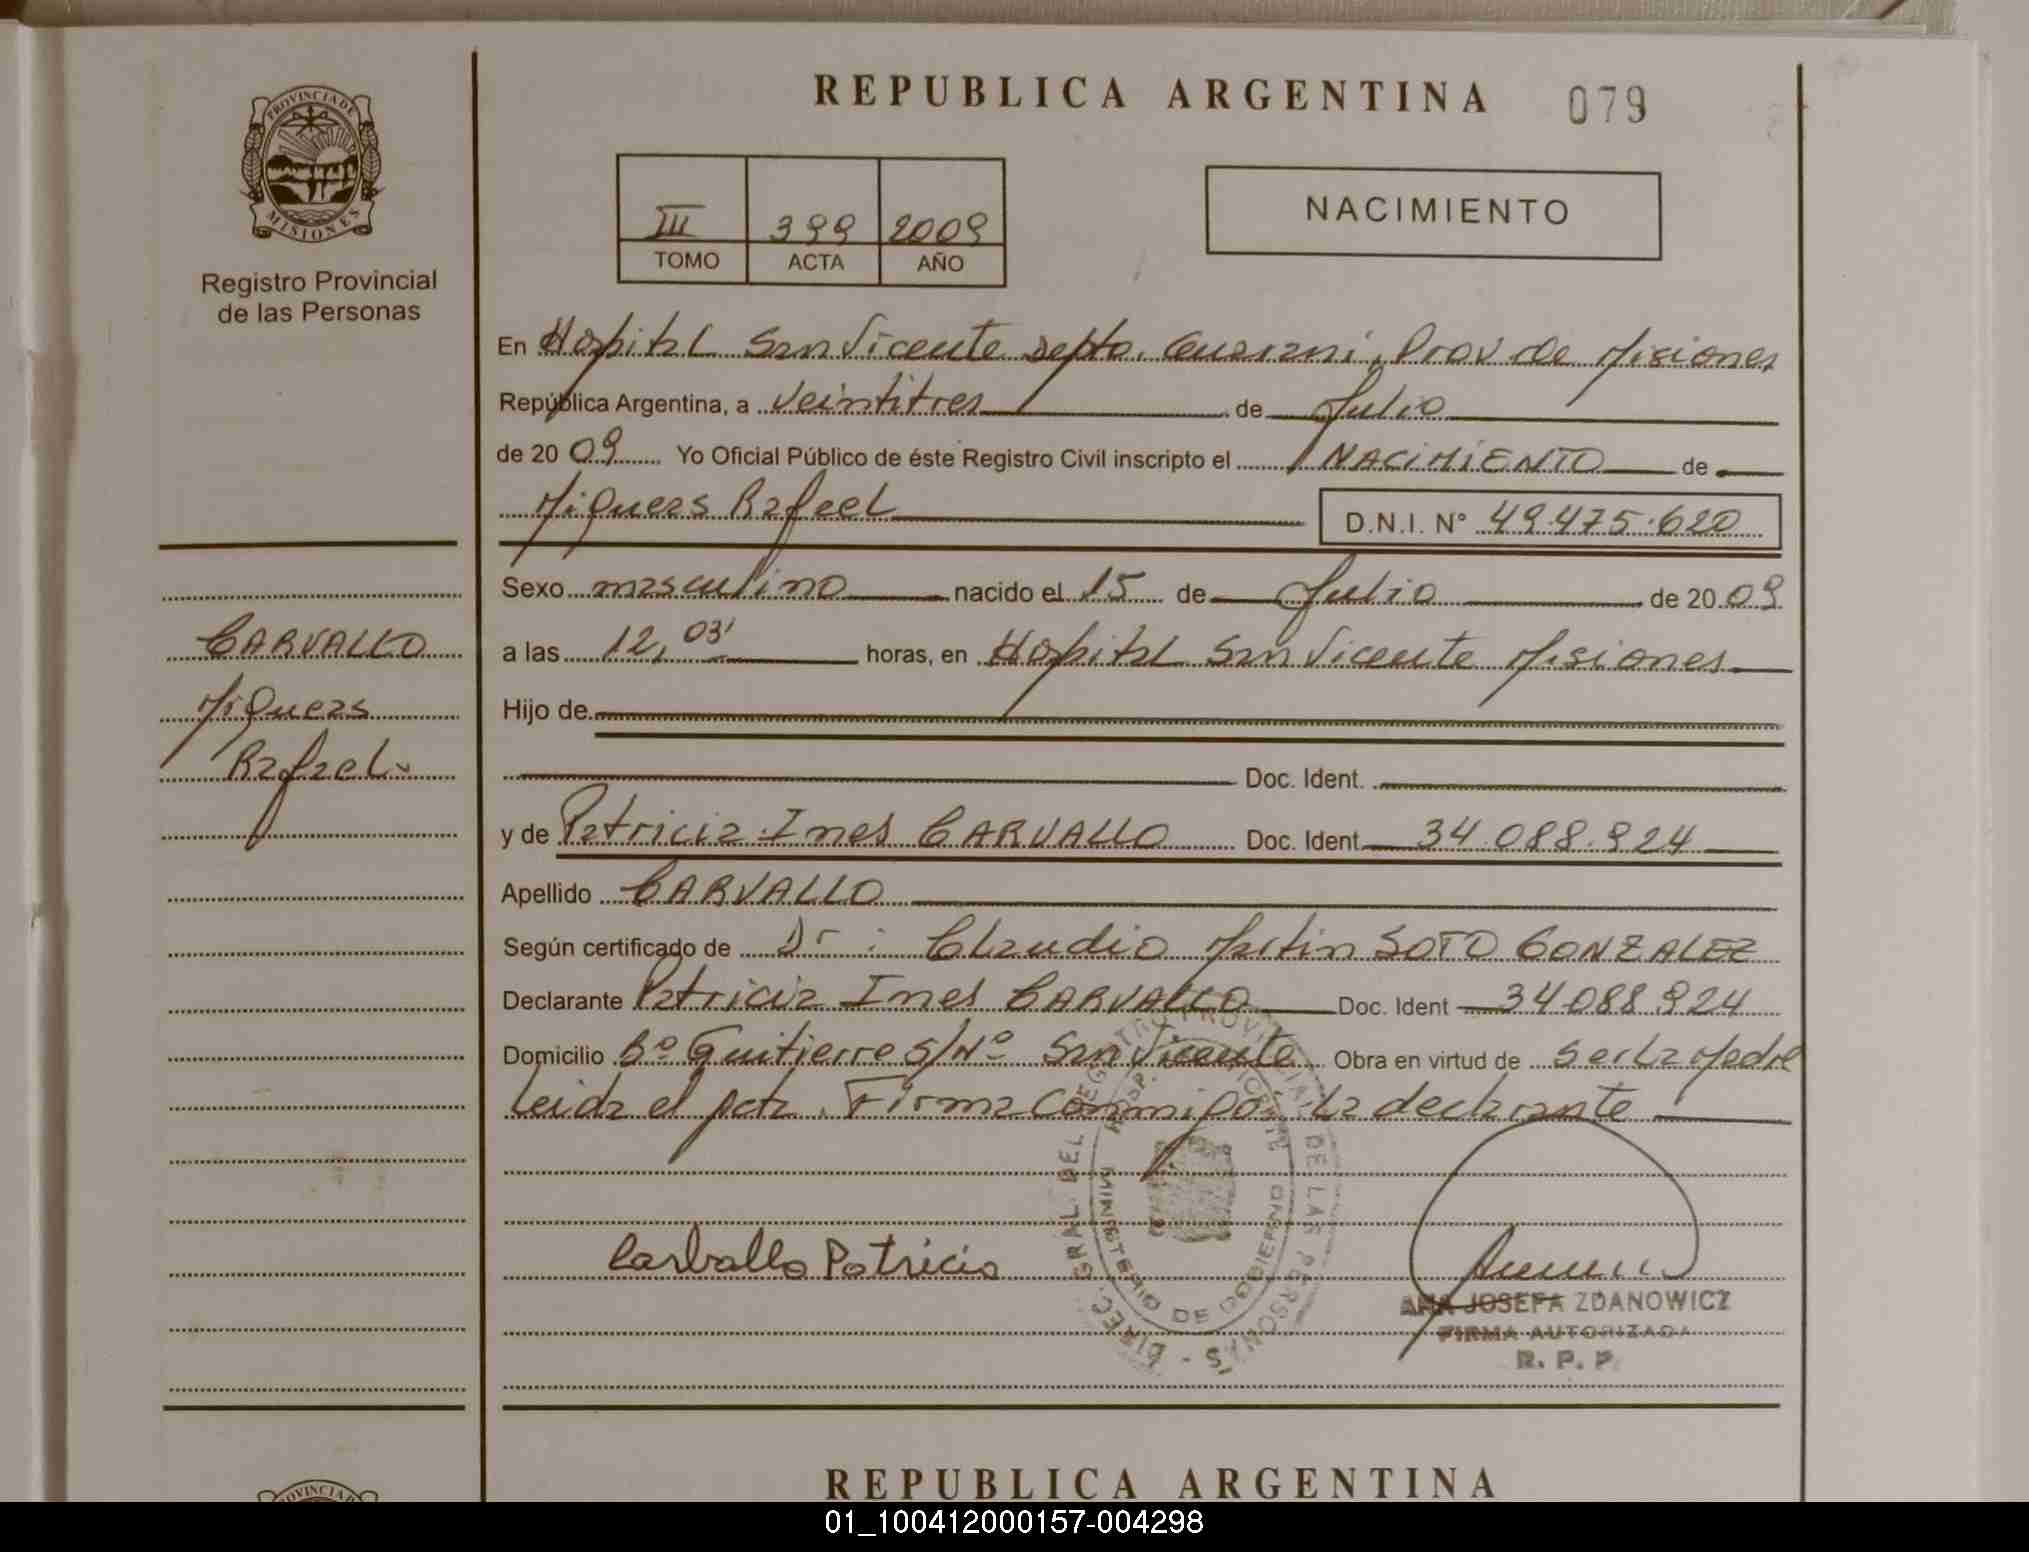 REPUBLICA ARGENTINA 079
PROVINCIA DE
MISIONES
Registro Provincial
de las Personas
III 399 2009
TOMO ACTA AÑO
NACIMIENTO
En Hospital San Vicente Depto. Guarani, Prov de Misiones
República Argentina, a veintitres de Julio
de 2009 Yo Oficial Público de éste Registro Civil inscripto el NACIMIENTO de
Miqueas Rafael D.N.I. N° 49.475.620
Sexo masculino nacido el 15 de Julio de 2009
a las 12,03' horas, en Hospital San Vicente Misiones
Hijo de
Doc. Ident.
y de Patricia Ines CARVALLO Doc. Ident 34.088.924
Apellido CARVALLO
Según certificado de Dr: Claudio Martin SOTO GONZALEZ
Declarante Patricia Ines CARVALLO Doc. Ident 34.088.924
Domicilio Bº Guitierre S/Nº San Vicente Obra en virtud de ser la Madre
Leida el acta. Firma conmigo La declarante
CARVALLO
Miqueas
Rafael
Carballo Patricia
DIREC. GRAL DEL REGISTRO PROVINCIAL DE LAS PERSONAS
MINISTERIO DE GOBIERNO
HOSP. VICENTE
ANA JOSEFA ZDANOWICZ
FIRMA AUTORIZADA
R. P. P.
REPUBLICA ARGENTINA
01_100412000157-004298